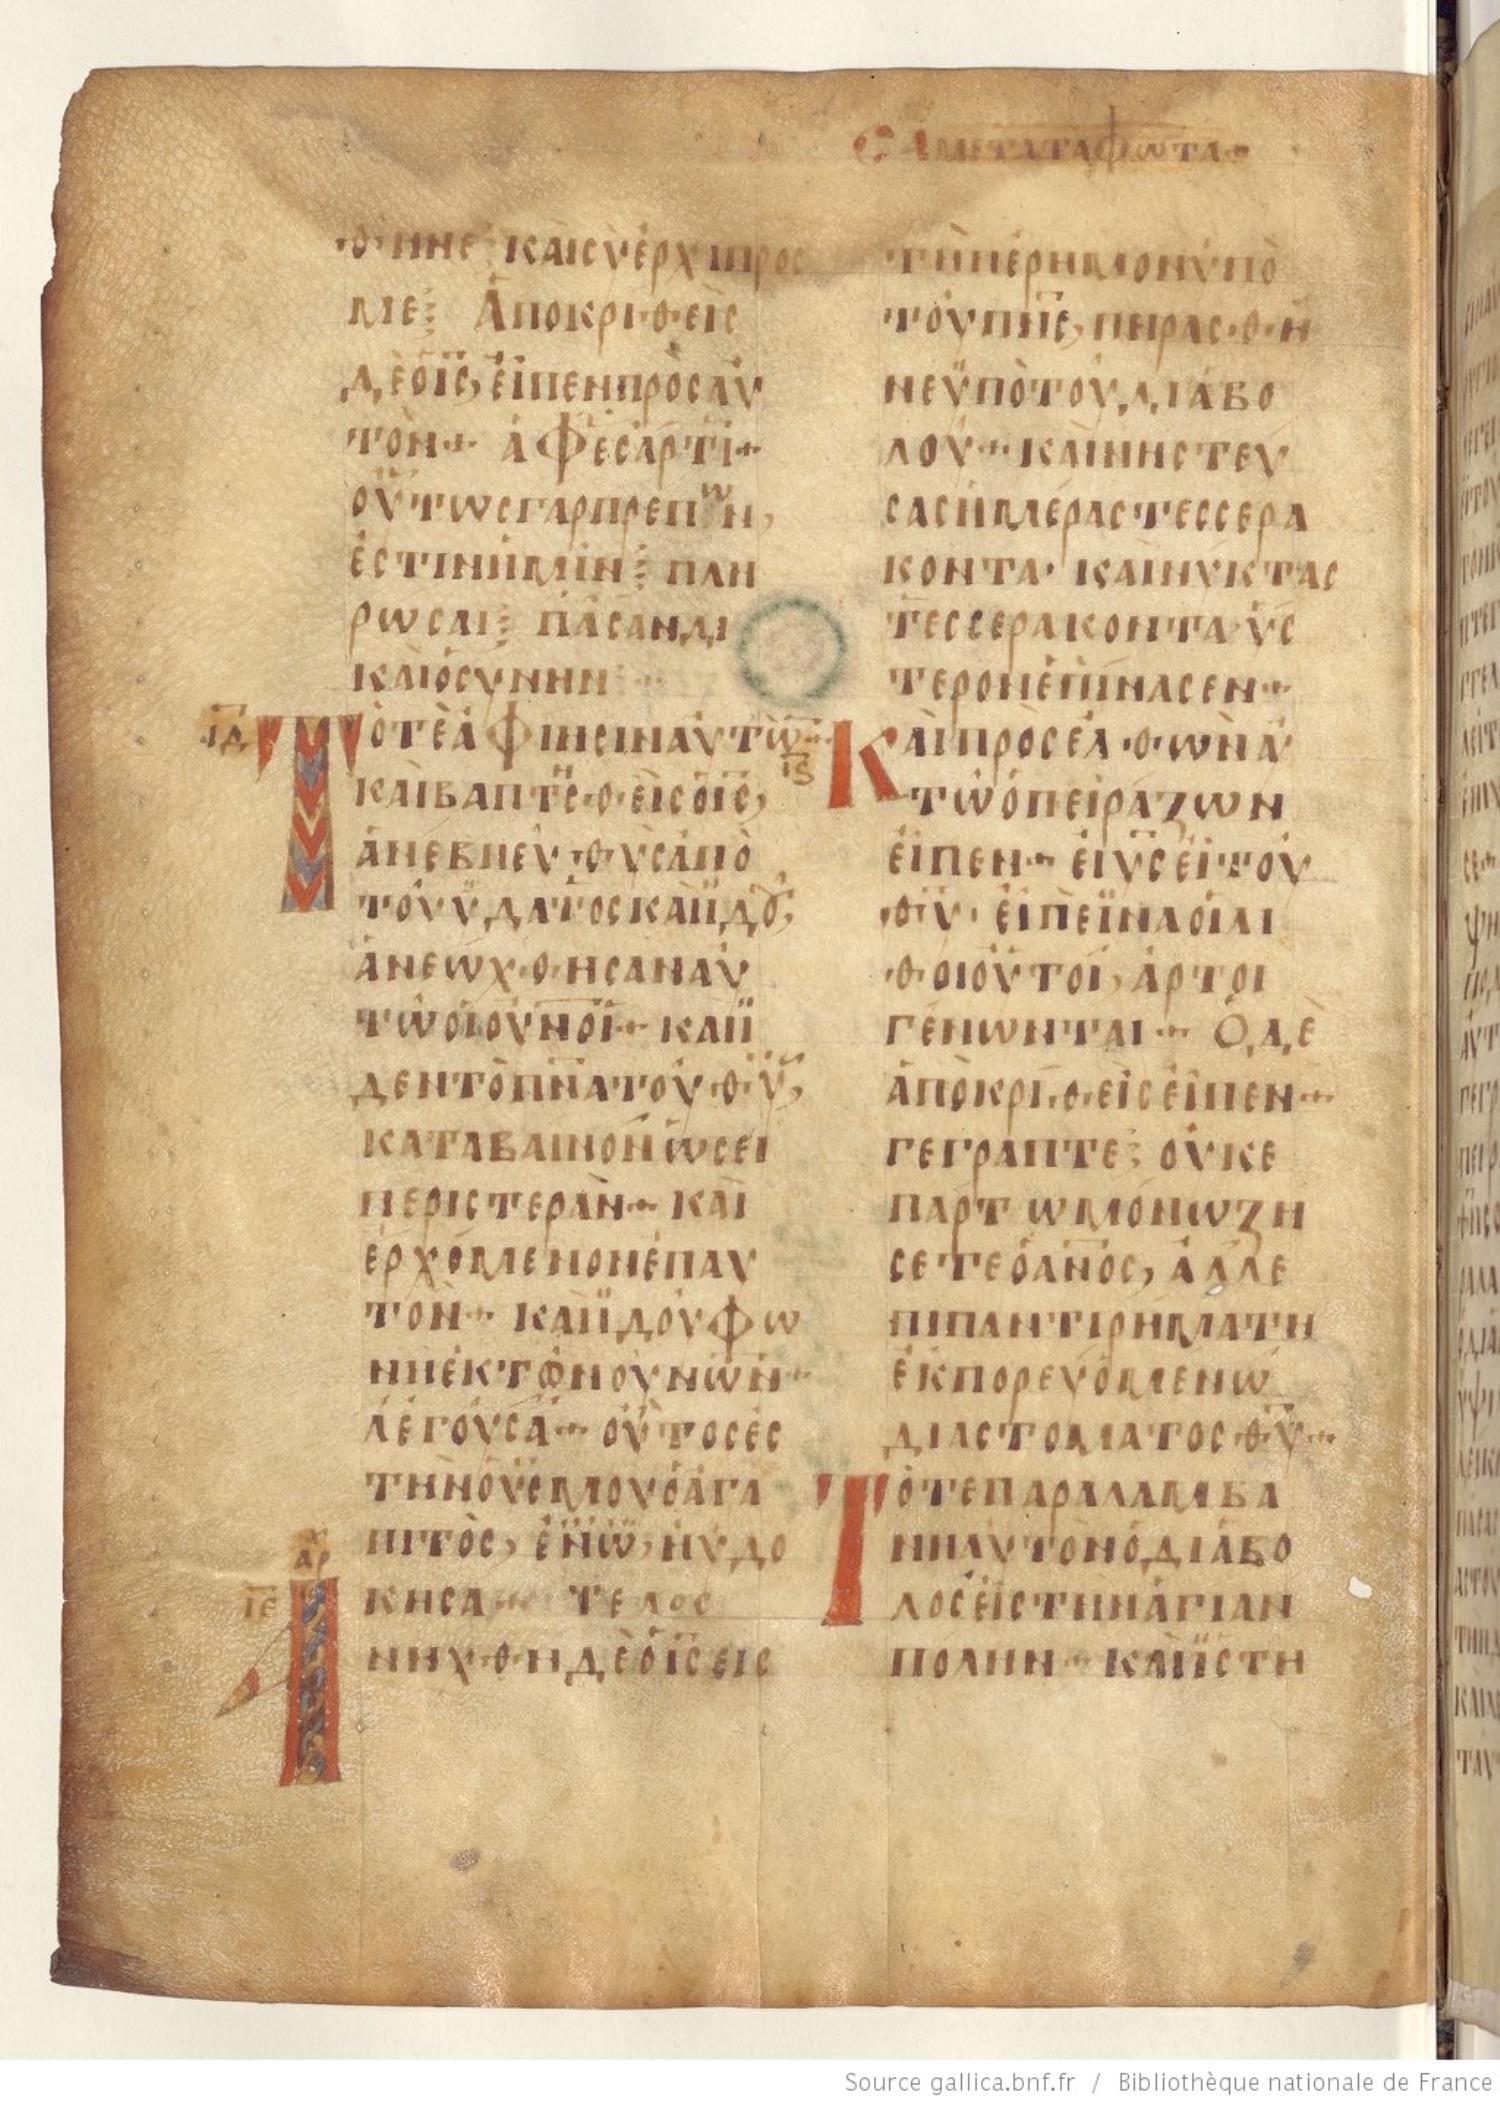 ϹΑ ΜΕΤΑ ΤΑ ΦΩΤΑ
θῆνε καὶ ϲὺ ἔρχη προϲ
ΜΕ⁝ ἈΠΟΚΡΙΘΕῚϹ
ΔῈ Ὁ ΙϹ, ἘΙΠΕΝ ΠΡῸϹ ΑΥ
ΤῸΝ·+ ἈΦΕϹ ἈΡΤΙ·+
ΟΥΤΩϹ ΓΑΡ ΠΡΕΠΩΝ,
ἘϹΤῚΝ ἩΜῚΝ⁝ ΠΛΗ
ΡΩϹΑΙ⁝ ΠᾺϹΑΝ ΔΙ
ΚΑΙΟϹΥΝΗΝ
ΙΔ ΤΌΤΕ ἈΦΙΗϹΙΝ ΑΥΤΩ·
ΚΑῚ ΒΑΠΤϹΘΕῚϹ Ὁ ΙϹ,
ἈΝΕΒΗ ΕΥΘΥϹ ἈΠῸ
ΤΟΥ ΥΔΑΤΟϹ ΚΑῚ ΙΔΟΥ,
ἈΝΕΩΧΘΗϹΑΝ ΑΥ
ΤΩ ΟΙ ΟΥΝΟΙ·+ ΚΑῚ Ϊ
ΔΕΝ ΤῸ ΠΝΑ ΤΟΥ ΘΥ,
ΚΑΤΑΒΑΙΝΟΝ ΩϹΕΙ
ΠΕΡΙϹΤΕΡᾺΝ·+ ΚΑῚ
ἘΡΧΟΜΕΝΟΝ ἘΠ ΑΥ
ΤΟΝ·+ ΚΑῚ ΙΔΟΥ ΦΩ
ΝΗ ἘΚ ΤΩΝ ΟΥΝΩΝ·+
ΛΕΓΟΥϹΑ·+ ΟΥΤΟϹ ἘϹ
ΤΗΝ Ὁ ΥϹ ΜΟΥ Ὁ ἈΓΑ
ΠΙΤῸϹ, ἘΝ Ω, ΗΥΔΟ
ΚΗϹΑ·+ ΤΕΛΟϹ
ΑΡΧ
ΙΕ ΝΗΧΘΗ ΔῈ Ὁ ΙϹ ΕΙϹ
ΤῊΝ ἘΡΗΜΟΝ ΥΠῸ
ΤΟΥ ΠΝϹ, ΠΗΡΑϹΘΗ
ΝΕ ΥΠῸ ΤΟΥ ΔΙΑΒΟ
ΛΟΥ·+ ΚΑῚ ΝΗϹΤΕΥ
ϹΑϹ ἩΜΕΡΑϹ ΤΕϹϹΕΡΑ
ΚΟΝΤΑ· ΚΑῚ ΝΥΚΤΑϹ
ΤΕϹϹΕΡΑΚΟΝΤΑ· ΥϹ
ΤΕΡΟΝ ἘΠΙΝΑϹΕΝ·+
ΙϚ ΚΑῚ ΠΡΟϹΕΛΘΩΝ Α
ΥΤΩ Ὁ ΠΕΙΡΑΖΩΝ
ΕΙΠΕΝ·+ ΕΙ ΥϹ ΕΙ ΤΟΥ
ΘΥ· ΕΙΠῈ ΙΝΑ ΟΙ ΛΙ
ΘΟΙ ΟΥΤΟΙ, ἈΡΤΟΙ
ΓΕΝΩΝΤΑΙ·+ Ὁ ΔῈ
ἈΠΟΚΡΙΘΕΙϹ ΕΙΠΕΝ·+
ΓΕΓΡΑΠΤΕ⁝ ΟΥΚ Ε
Π ΑΡΤΩ ΜΟΝΩ ΖΗ
ϹΕΤΕ Ὁ ΑΝΟϹ, ἈΛΛ Ε
ΠΙ ΠΑΝΤΙ ΡΗΜΑΤΗ
ἘΚΠΟΡΕΥΟΜΕΝΩ
ΔΙΑ ϹΤΟΜΑΤΟϹ ΘΥ·+
ΤΌΤΕ ΠΑΡΑΛΑΜΒΑ
ΝΗ ΑΥΤῸΝ Ὁ ΔΙΑΒΟ
ΛΟϹ ΕΙϹ ΤῊΝ ἈΓΙΑΝ
ΠΟΛΗΝ·+ ΚΑῚ ΙϹΤΗ
Source gallica.bnf.fr / Bibliothèque nationale de France